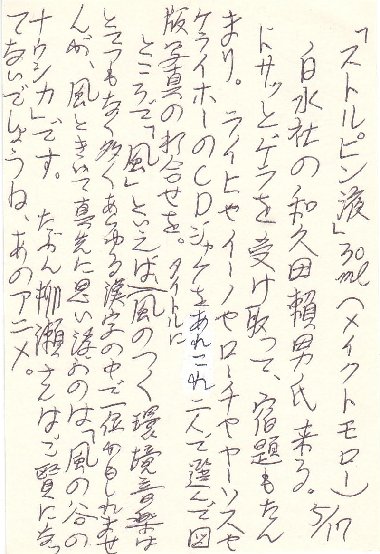 「ストルピン液」30ml（メイクトモロー）
5/17
白水社の和久田頼男氏来る。
ドサッとゲラを受け取って、宿題もたん
まり。ライヒやイーノやローチやヤーンソンや
ケライホーのCDジャケをあれこれ二人で選んで図
版写真の打合せを。
ところで「風」といえば「風のつく環境音楽は
タイトルに
とてつもなく多くあらゆる漢字の中で一位かもしれませ
んが、風ときいて真先に思い浮ぶのは「風の谷の
ナウシカ」です。たぶん柳瀬さんはご覧になっ
てないでしょうね、あのアニメ。